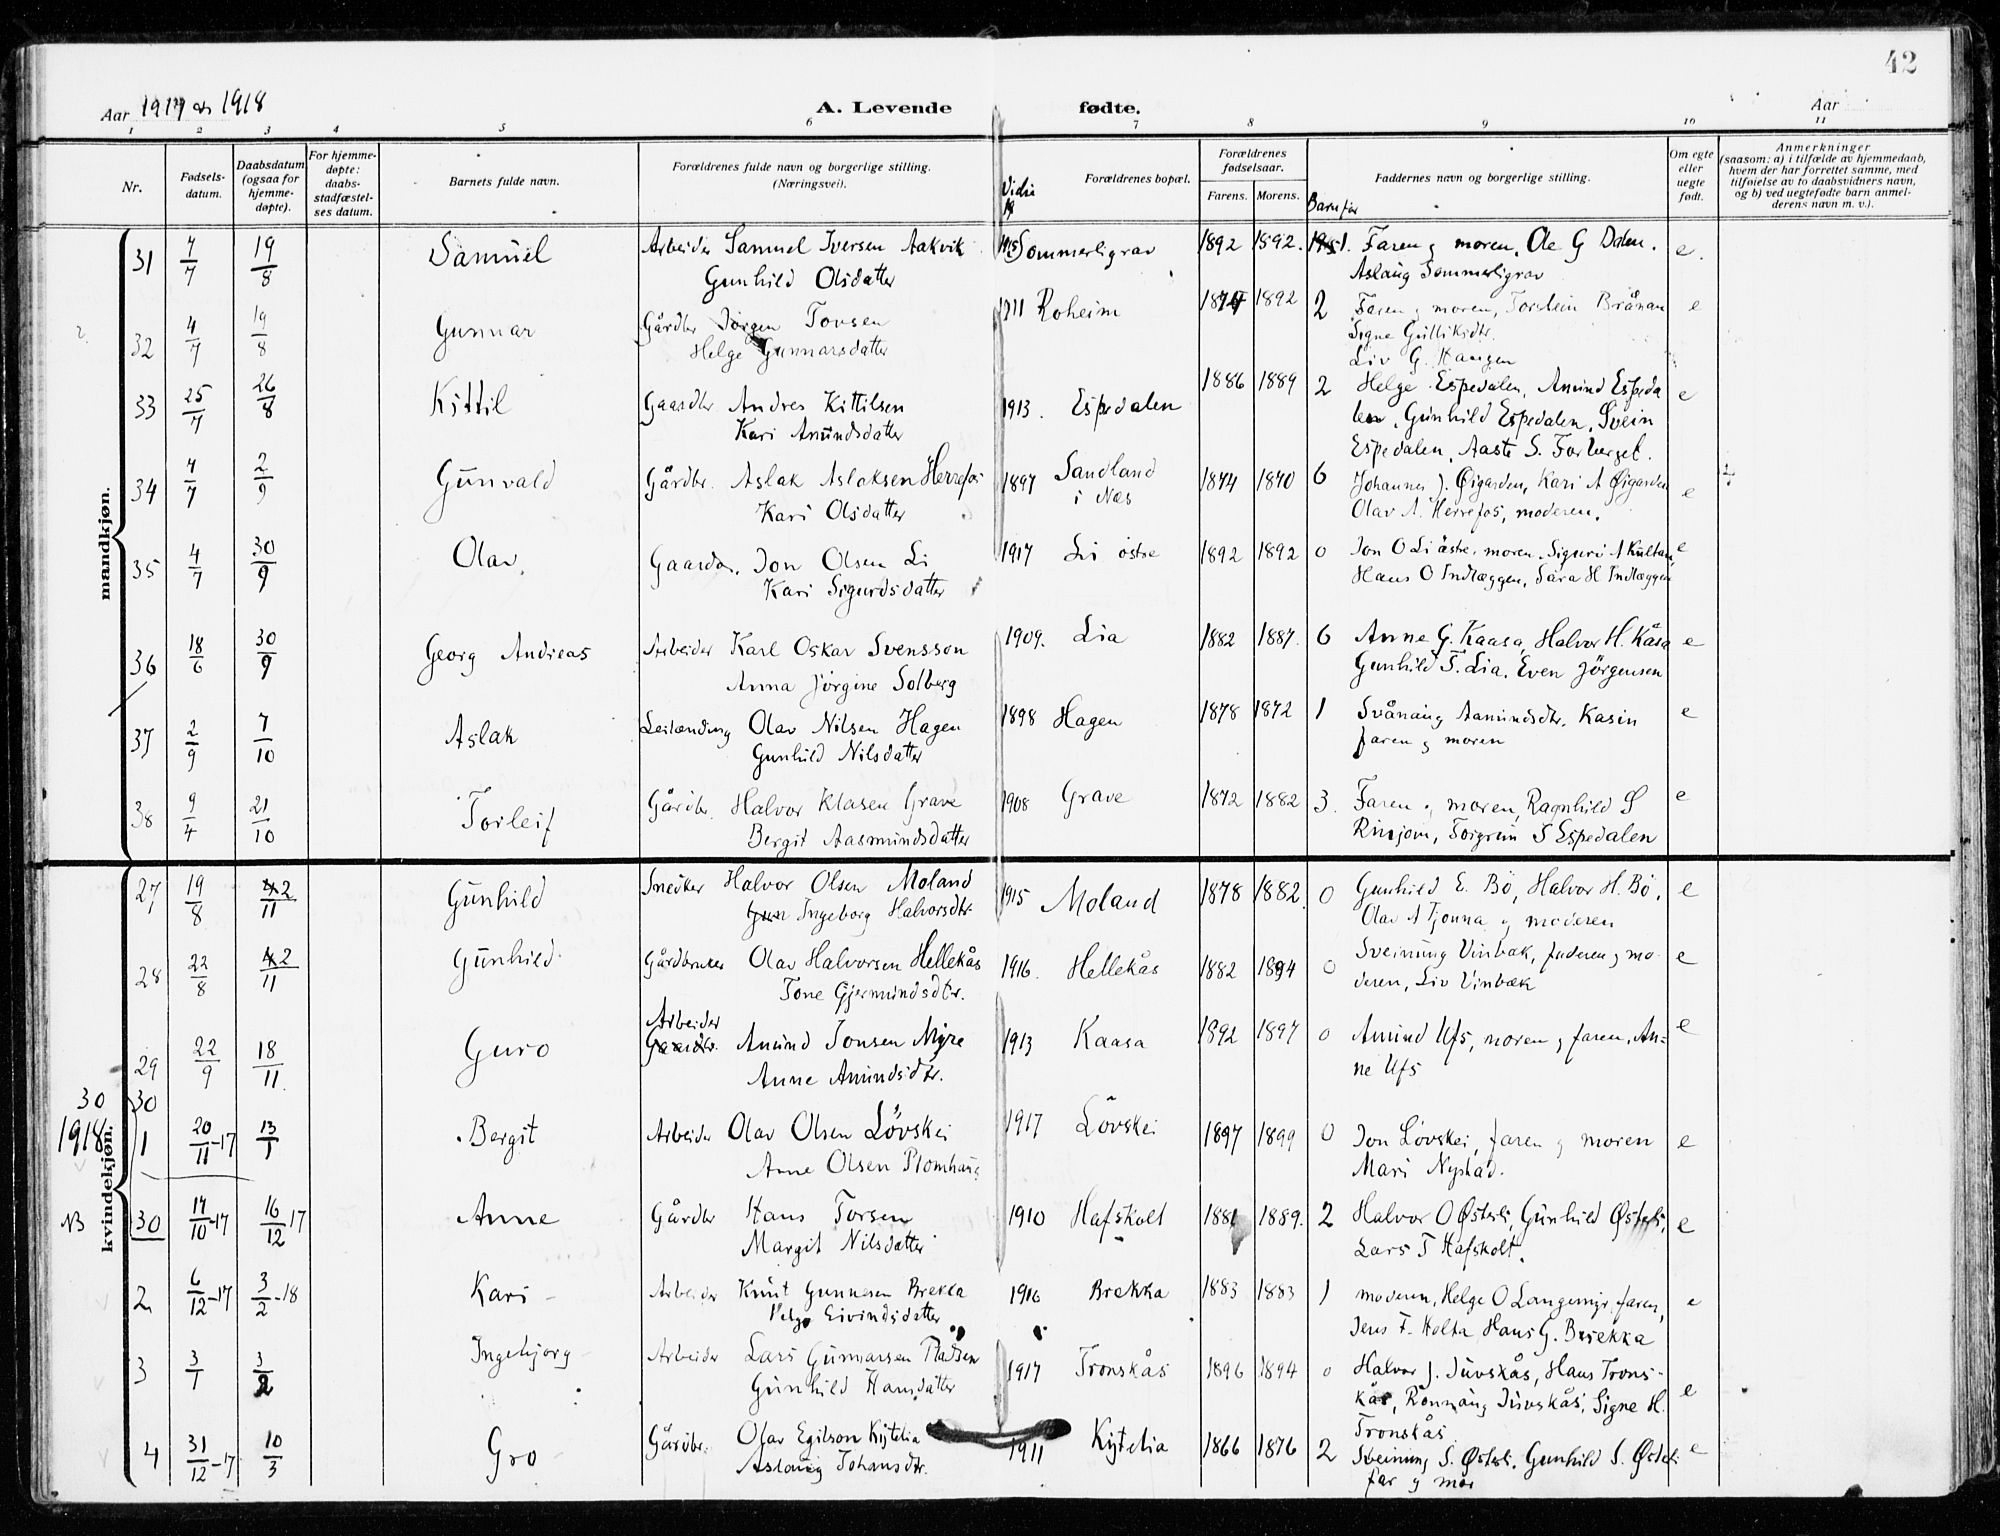 42
Aar 1917 & 1918 A. Levende fødte. Aar
1 2 3 4 5 6 7 8 9 10 11
Nr. Fødsels-datum. Daabsdatum (ogsaa for hjemme-døpte). For hjemme-døpte: daabs-stadfæstel-ses datum. Barnets fulde navn. Forældrenes fulde navn og borgerlige stilling. (Næringsvei). Vidi 19 Forældrenes bopæl. Forældrenes fødselsaar. Farens. Morens. Barn før Faddernes navn og borgerlige stilling. Om egte eller uegte født. Anmerkninger (saasom: a) i tilfælde av hjemmedaab, hvem der har forrettet samme, med tilføielse av to daabsvidners navn, og b) ved uegtefødte barn anmel-derens navn m. v.).
mandkjøn.
31 4/7 19/8 Samuel Arbeider Samuel Iversen Aakvik 1915 Sommerligrav 1892 1892. 1. Faren og moren, Ole G Dalen. e.
Gunhild Olsdatter Aslaug Sommerligrav
32 4/7 19/8 Gunnar Gårdbr Jörgen Tovsen 1911 Roheim 1892 2 Faren og moren, Torstein Brånan e
Helge Gunnarsdatter Signe Gullikdtr.
Liv G. Haugen
33 25/7 26/8 Kittil Gaardbr Andres Kittilsen 1913. Espedalen 1886 1889 2 Helge Espedalen, Amund Espeda e
Kari Amundsdatter len, Gunhild Espedalen, Svein
Espedalen, Aaste S. Forberget.
34 4/7 2/9 Gunvald Gårdbr. Aslak Aslaksen Herrefos 1897 Sandland i Næs 1874 1870 6 Johannes J. Øigarden, Kari A Øigarden e
Kari Olsdatter Olav A. Herrefos, moderen.
35 4/7 30/9 Olav Gaardbr. Jon Olsen Li 1917 Li östre 1892 1892 0 Jon O Li östre, moren, Sigurd A Kultan, e
Kari Sigurdsdatter Hans O Indlæggen, Sara H Indlæggen
36 18/6 30/9 Georg Andreas Arbeider Karl Oskar Svensson 1909. Lia 1882 1887. 6 Anne G. Kaasa, Halvor H. Kåsa e
Anna Jörgine Solberg Gunhild T. Lia, Even Jörgensen
37 2/9 7/10 Aslak Leilænding Olav Nilsen Hagen 1898 Hagen 1878 1872 1 Svånaug Aamundsdtr. Kasin e
Gunhild Nilsdatter faren og moren
38 9/4 21/10 Torleif Gårdbr Halvor Klasen Grave 1908 Grave 1872 1882 3. Faren og moren, Ragnhild S e
Bergit Aasmundsdatter Rinjom, Torgrim S Espedalen
kvindekjøn.
27 19/8 2/11 Gunhild Snedker Halvor Olsen Moland 1915 Moland 1878 1882. 0 Gunhild E. Bö, Halvor H. Bö, e
Gun Ingeborg Halvorsdtr. Olav A Tjonna og moderen
28 22/8 2/11 Gunhild Gårdbruker Olav Halvorsen Hellekås 1916. Hellekås 1882 1894 0 Sveinung Vinbæk, faderen og mo- e
Tone Gjermundsdtr. deren, Liv Vinbæk
Arbeider
29 22/9 18/11 Guro Gaardbr. Amund Jonsen Myre 1913 Kaasa 1892 1897 0 Amund Ufs, moren og faren, An= e
Anne Amundsdtr. ne Ufs
30 30
1918 1 20/11-17 13/1 Bergit Arbeider Olav Olsen Lövskei 1917 Lövskei 1897 1899 0 Jon Lövskei, faren og moren e
Anne Olsen Plomhaug Mari Nystad.
NB 30 17/10-17 16/12 17 Anne Gårdbr Hans Torsen 1910 Hafskolt 1881 1889. 2 Halvor O Østerli, Gunhild Østerli, e
Margit Nilsdatter Lars T Hafskolt.
2 6/12-17 3/2-18 Kari Arbeider Knut Gunnesen Brekka 1916 Brekka 1883 1883 1 moderen, Helge O Langemyr, faren, e
Helge Eivindsdatter Jens F. Holta Hans G. Brekka
3 3/1 3/2 Ingebjorg Arbeider Lars Gunnarsen Pladsen 1917 Tronskås 1896 1894 0 Halvor J. Juvskås, Hans Trons- e
Gunhild Hansdatter kås, Rönnaug Juvskås, Signe H.
Tronskås.
4 31/12-17 10/3 Gro Gårdbr. Olav Egilson Kijtelia 1911 Kijtelia 1866 1876 2 Sveinung S. Østerli. Gunhild S. Østerli e
Aslaug Johansdtr. far og mor